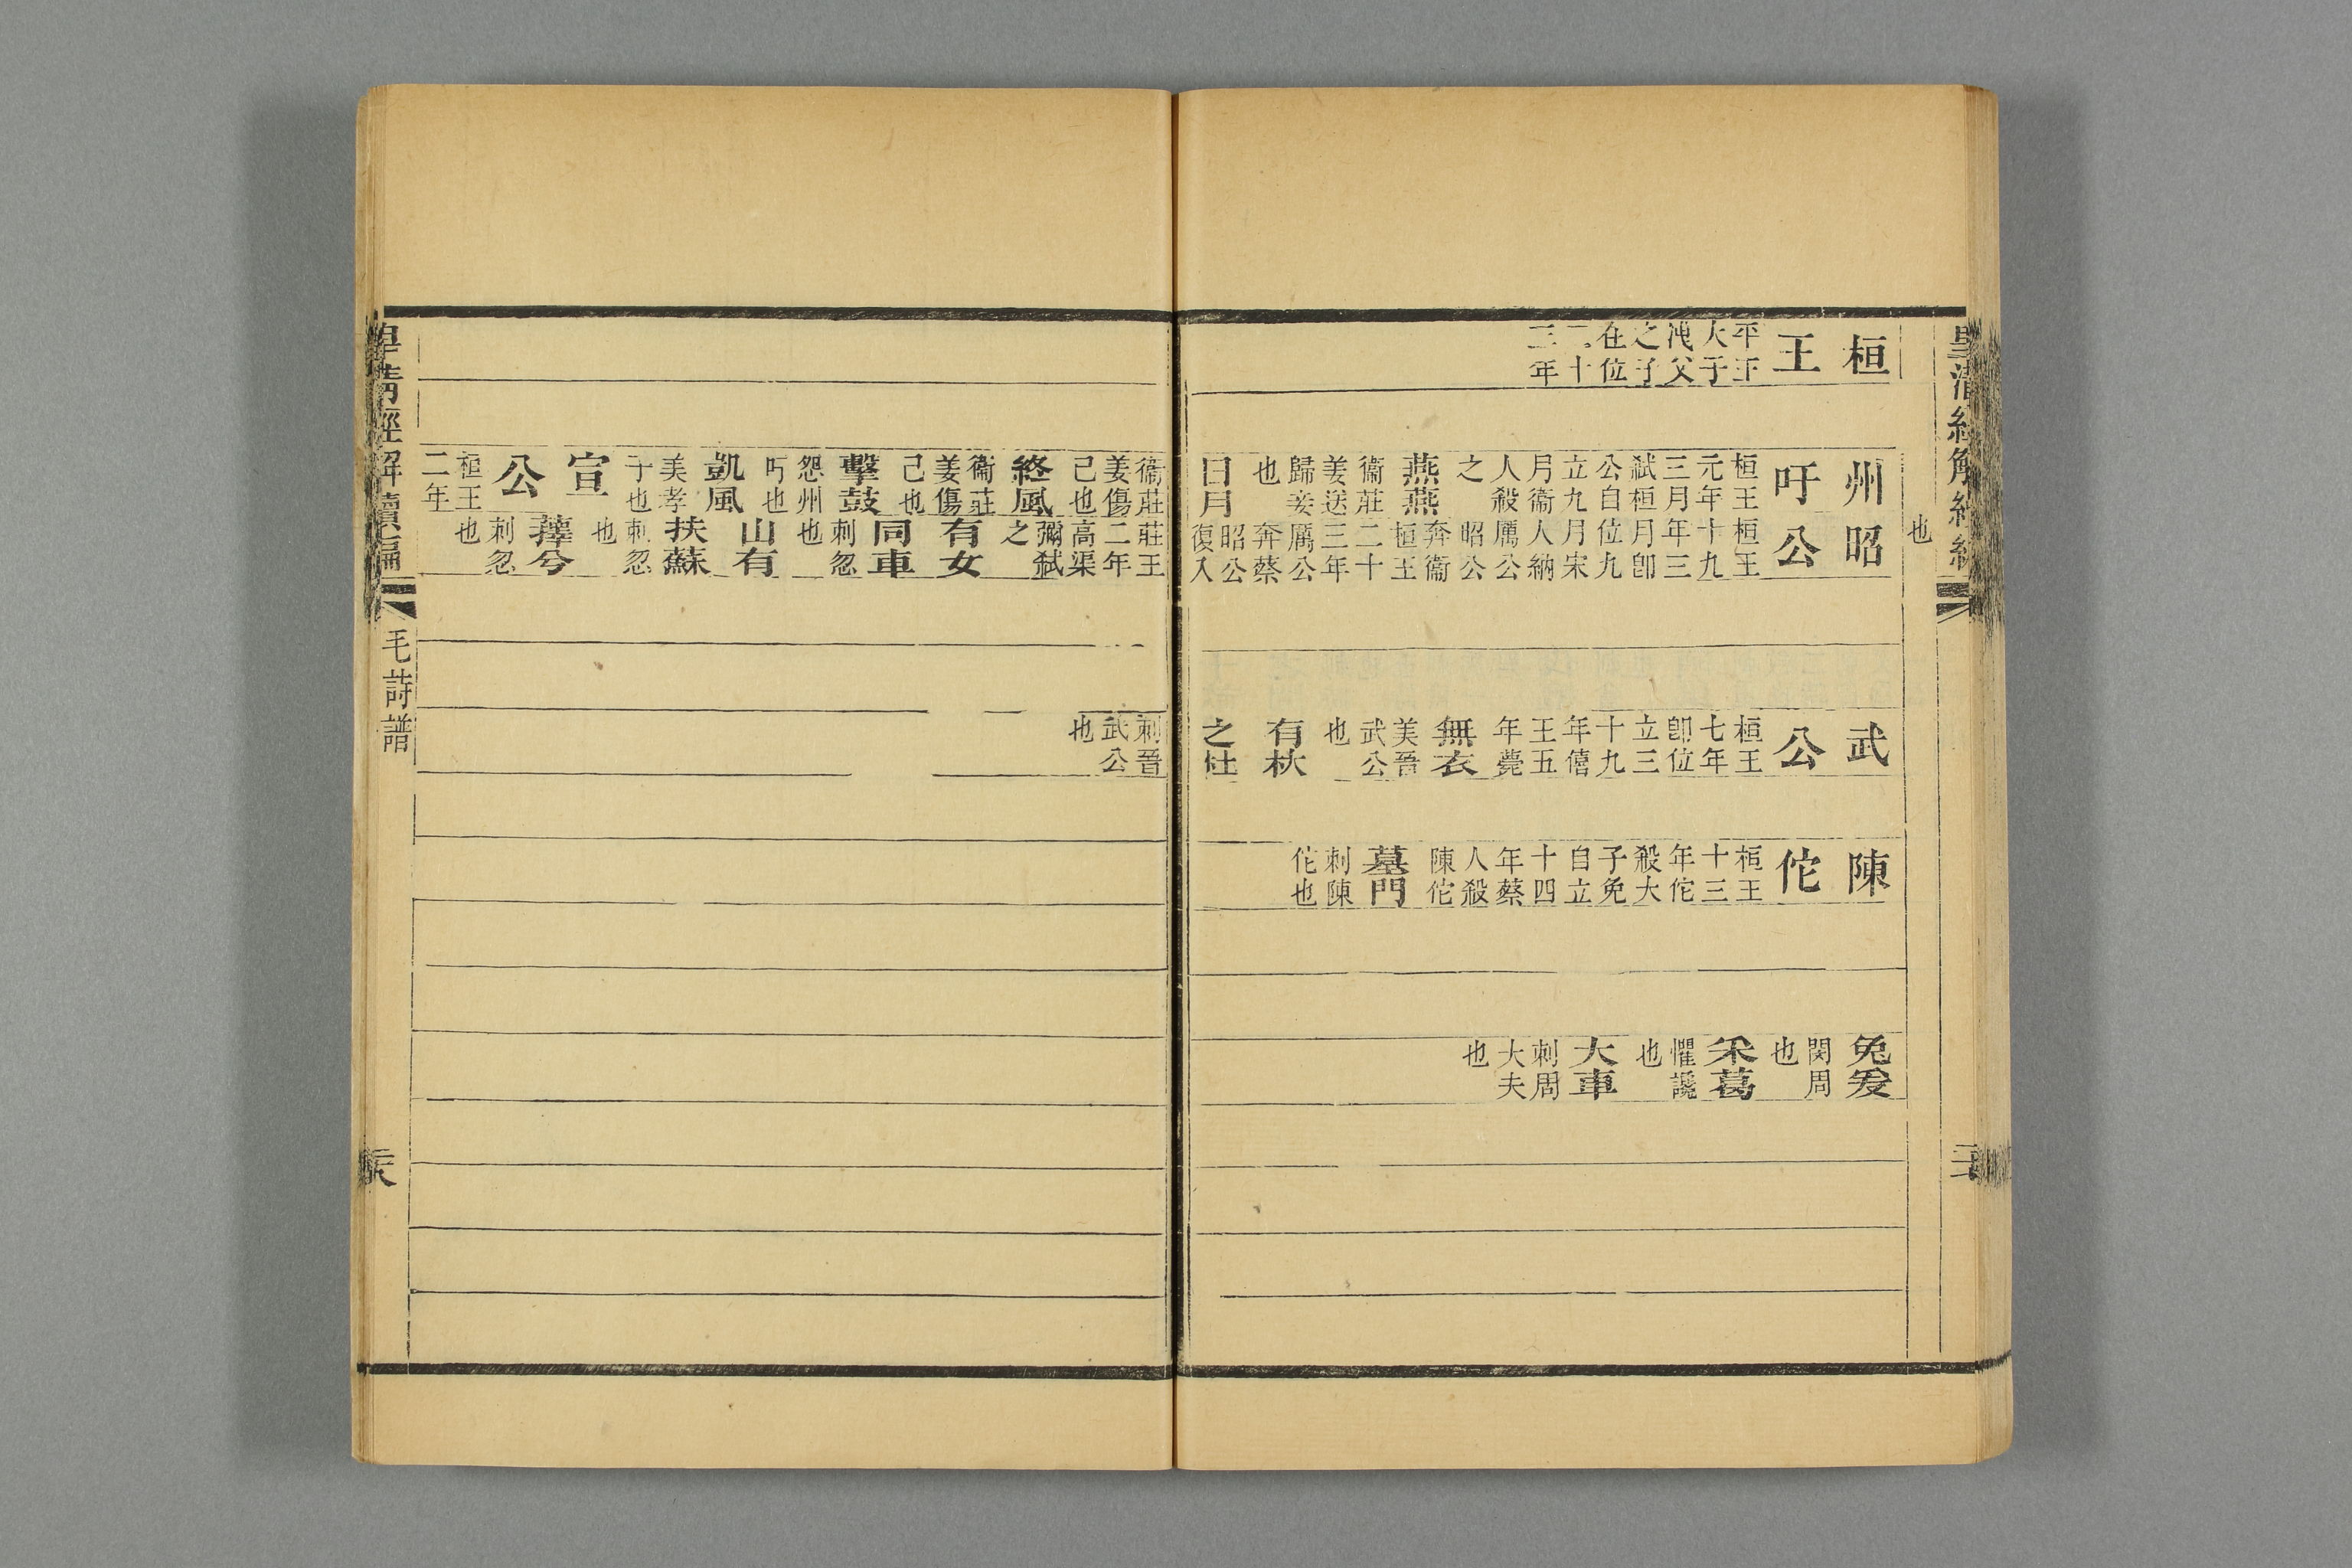 皇清經解續編
也
桓王 平王大子洩父之子在位二十三年
州吁 桓王元年三月弒桓公自立九月衞人殺之 燕燕 衞莊姜送歸妾也 日月
昭公 桓王十九年三月卽位九月宋人納厲公昭公奔衞桓王二十三年厲公奔蔡昭公復入
武公 桓王七年卽位立三十九年僖王五年薨 無衣 美晉武公也 有杕之杜
陳佗 桓王十三年佗殺大子免自立十四年蔡人殺陳佗 墓門 刺陳佗也
兔爰 閔周也 采葛 懼讒也 大車 刺周大夫也
衞莊姜傷己也 終風 衞莊姜傷己也 擊鼓 怨州吁也 凱風 美孝子也 宣公 桓王二年
莊王二年高渠彌弒之 有女同車 刺忽也 山有扶蘇 刺忽也 蘀兮 刺忽也
刺晉武公也
皇清經解續編 毛詩譜